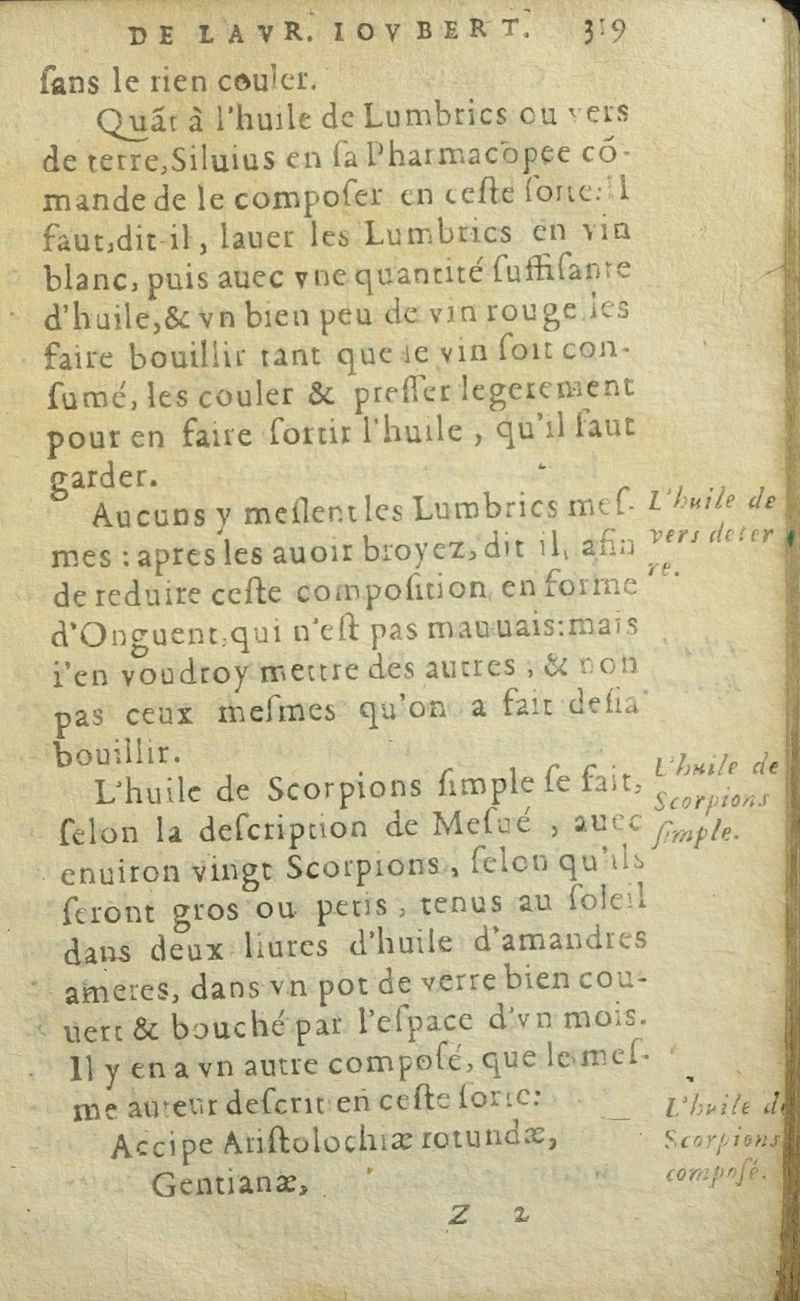 DE LAVR. IOVBERT. 319
ſans le rien couler.
Quãt à l'huile de Lumbrics ou vers
de terre,Siluius en ſa Pharmacopee cõ-
mande de le compoſer en ceſte ſorte: il
faut,dit-il, lauer les Lumbrics en vin
blanc, puis auec vne quantité ſuffiſante
d'huile,& vn bien peu de vin rouge les
faire bouillir tant que le vin ſoit con-
ſumé, les couler & preſſer legerement
pour en faire ſortir l'huile, qu'il faut
garder.
Aucuns y meſlent les Lumbrics meſ-
L'huile de
mes : apres les auoir broyez, dit il, afin
vers de ter
de reduire ceſte compoſition en forme
re.
d'Onguent,qui n'eſt pas mauuais:mais
i'en voudroy mettre des autres, & non
pas ceux meſmes qu'on a fait deſia
bouillir.
L'huile de Scorpions ſimple ſe fait,
L'huile de
ſelon la deſcription de Meſué, auec
Scorpions
enuiron vingt Scorpions, ſelon qu'ils
ſimple.
ſeront gros ou petis, tenus au ſoleil
dans deux liures d'huile d'amandres
ameres, dans vn pot de verre bien cou-
uert & bouché par l'eſpace d'vn mois.
Il y en a vn autre compoſé, que le meſ-
me auteur deſcrit en ceſte ſorte:
L'huile de
Accipe Ariſtolochiæ rotundæ,
Scorpions
Gentianæ,
compoſé.
Z 2